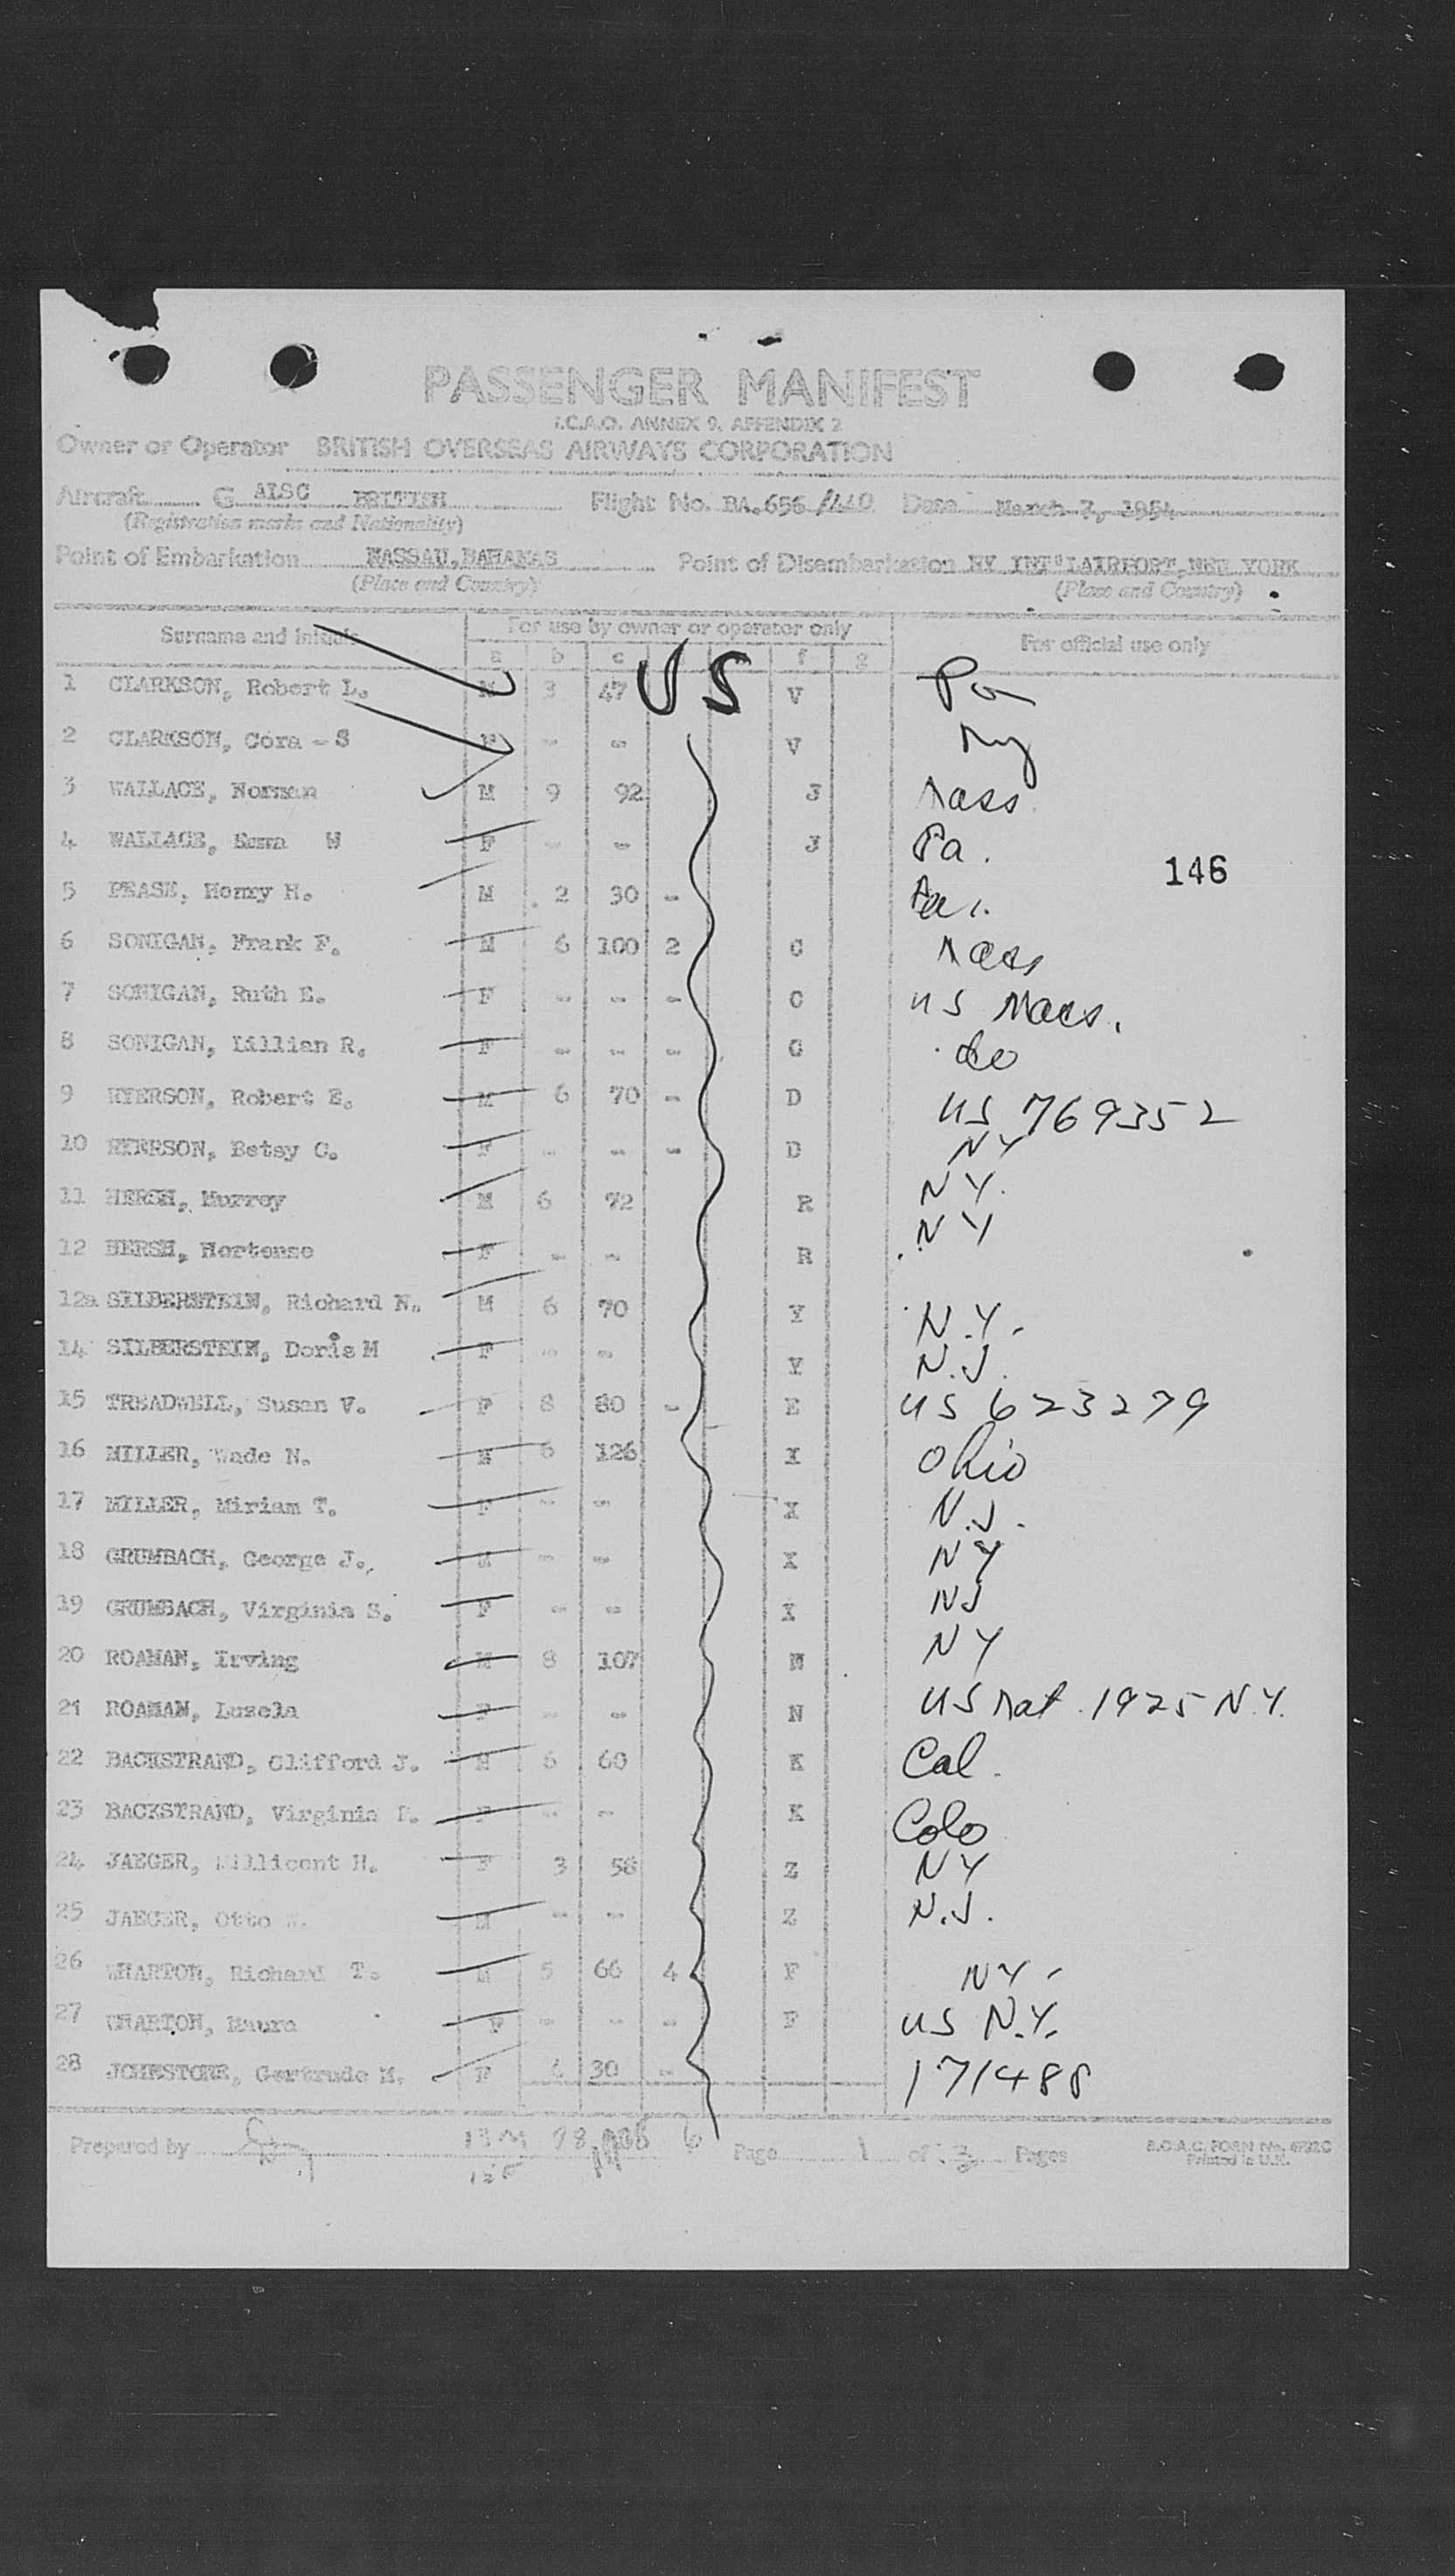 PASSENGER MANIFEST
I.C.A.O. ANNEX 9, APPENDIX 2
Owner or Operator BRITISH OVERSEAS AIRWAYS CORPORATION
Aircraft G ALSC BRITISH Flight No. BA.656 /440 Date March 7, 1954
(Registration marks and Nationality)
Point of Embarkation NASSAU, BAHAMAS Point of Disembarkation NY INT'L AIRPORT, NEW YORK
(Place and Country) (Place and Country)
Surname and Initials For use by owner or operator only For official use only
a b c f g
US
1 CLARKSON, Robert L. M 3 47 V Pa
2 CLARKSON, Cora - S F - - V NY
3 WALLACE, Norman M 9 92 J Mass
4 WALLACE, Emma W F - - J Pa.
146
5 PEASE, Henry H. M 2 30 - Pa.
6 SONIGAN, Frank F. M 6 100 2 C Mass
7 SONIGAN, Ruth E. F - - - C US Mass.
8 SONIGAN, Lillian R. F - - - C do
9 RYERSON, Robert E. M 6 70 - D US 769352
10 RYERSON, Betsy C. F - - - D NY
11 HERSH, Murray M 6 72 R NY.
12 HERSH, Hortense F - - R NY
12a SILBERSTEIN, Richard N. M 6 70 Y N.Y.
14 SILBERSTEIN, Doris M F - - Y N.J.
15 TREADWELL, Susan V. F 8 80 - E US 623279
16 MILLER, Wade N. M 6 126 X Ohio
17 MILLER, Miriam T. F - - X N.J.
18 GRUMBACH, George J. M - - X NY
19 GRUMBACH, Virginia S. F - - X NJ
20 ROAMAN, Irving M 8 107 N NY
21 ROAMAN, Lusela F - - N US Nat. 1925 N.Y.
22 BACKSTRAND, Clifford J. M 6 60 K Cal.
23 BACKSTRAND, Virginia F - - K Colo
24 JAEGER, Millicent H. F 3 58 Z NY
25 JAEGER, Otto M - - Z N.J.
26 WHARTON, Richard T. M 5 66 4 F NY
27 WHARTON, Maura F - - - F US N.Y.
28 JOHNSTONE, Gertrude M. F 4 30 - 171488
Prepared by 13M 78 6 Page 1 of 3 Pages B.O.A.C. FORM No.
15F Printed in U.K.